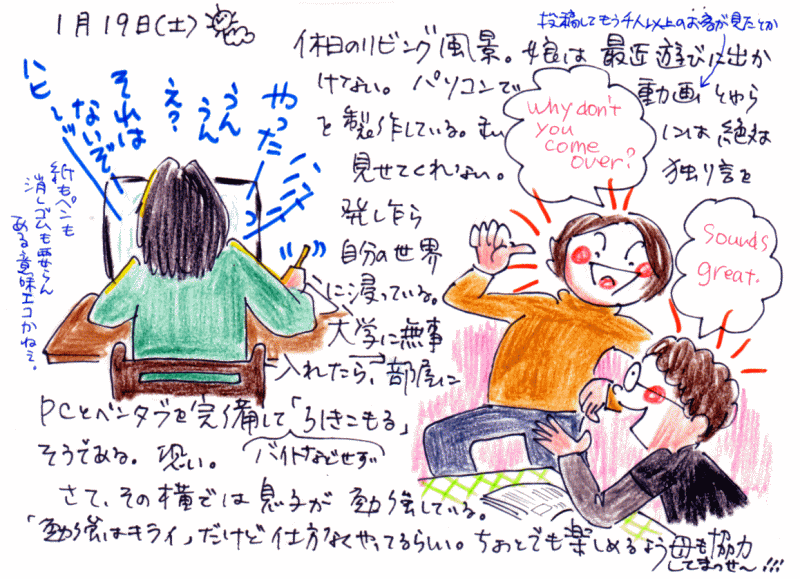 1月19日(土)
投稿してもう千人以上のお客が見たとか
休日のリビング風景。娘は最近遊びに出か
けない。パソコンで動画とやら
を製作している。私には絶対
見せてくれない。独り言を
発し乍ら
自分の世界
に浸っている。
大学に無事
入れたら、部屋に
PCとペンタブを完備して「引きこもる」
そうである。恐い。
バイトなどせず
さて、その横では息子が勉強している。
「勉強はキライ」だけど仕方なくやってるらしい。ちょっとでも楽しめるよう母も協力
してまっせ〜!!!
やった
ハハハハ
うん
うん
え?
それは
ないぞ
ハヒ〜ッ
紙もペンも
消しゴムも要らん
ある意味エコかねぇ。
Why don't
you
come
over?
Sounds
great.